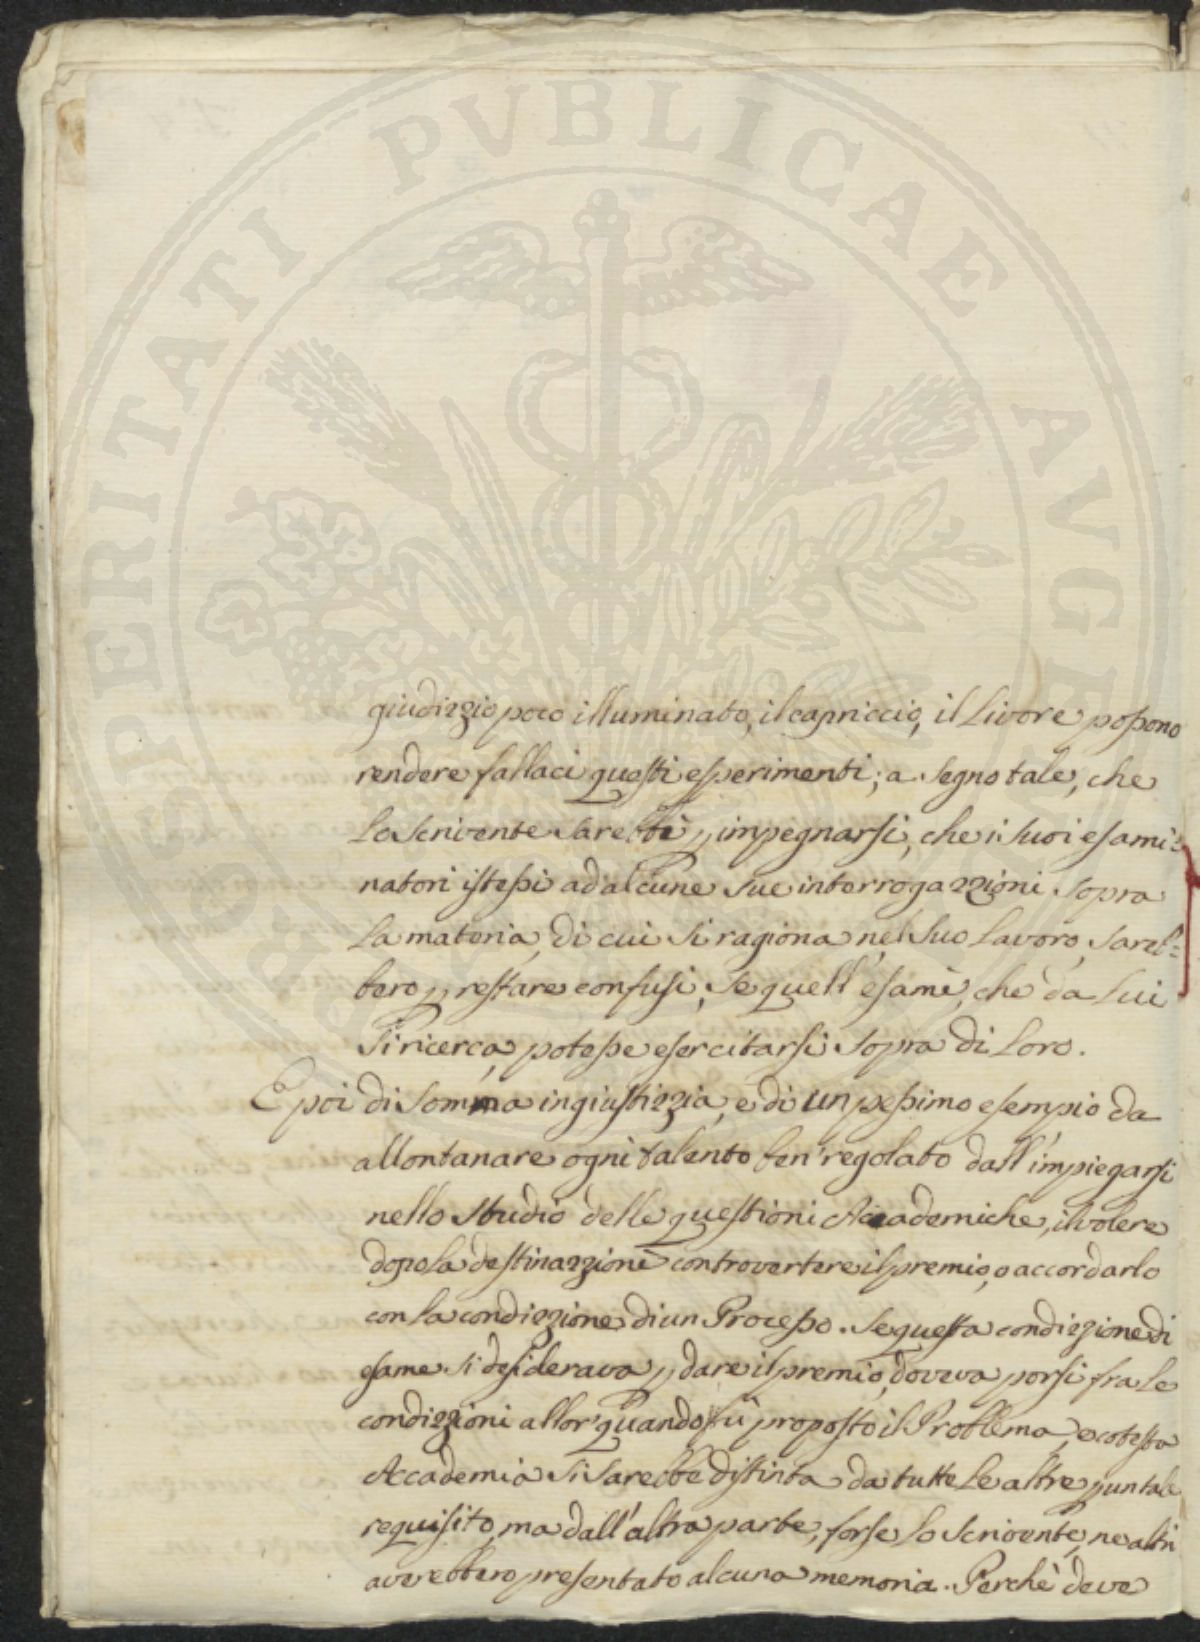 PROSPERITATI PVBLICAE AVGENDAE
giudizzio poco illuminato, il capriccio, il livore possono
rendere fallaci questi esperimenti; a segno tale, che
lo scrivente sarebbe p impegnarsi, che i suoi esami=
natori istessi ad alcune sue interrogazzioni sopra
la materia, di cui si ragiona nel suo lavoro, sareb=
bero p restare confusi, se quell'esame, che da lui
si ricerca, potesse esercitarsi sopra di loro.
E poi di somma ingiustizzia, e di un pessimo esempio da
allontanare ogni talento ben regolato dall'impiegarsi
nello studio delle questioni Accademiche, il volere
dopo la destinazzione controvertere il premio, o accordarlo
con la condizzione di un Processo. Se questa condizzione di
esame si desiderava p dare il premio, doveva porsi fra le
condizzioni allor quando fù proposto il Problema, e cotesta
Accademia si sarebbe distinta da tutte le altre p un tale
requisito, ma dall'altra parte, forse lo scrivente, ne altri
averebbero presentato alcuna memoria. Perchè deve